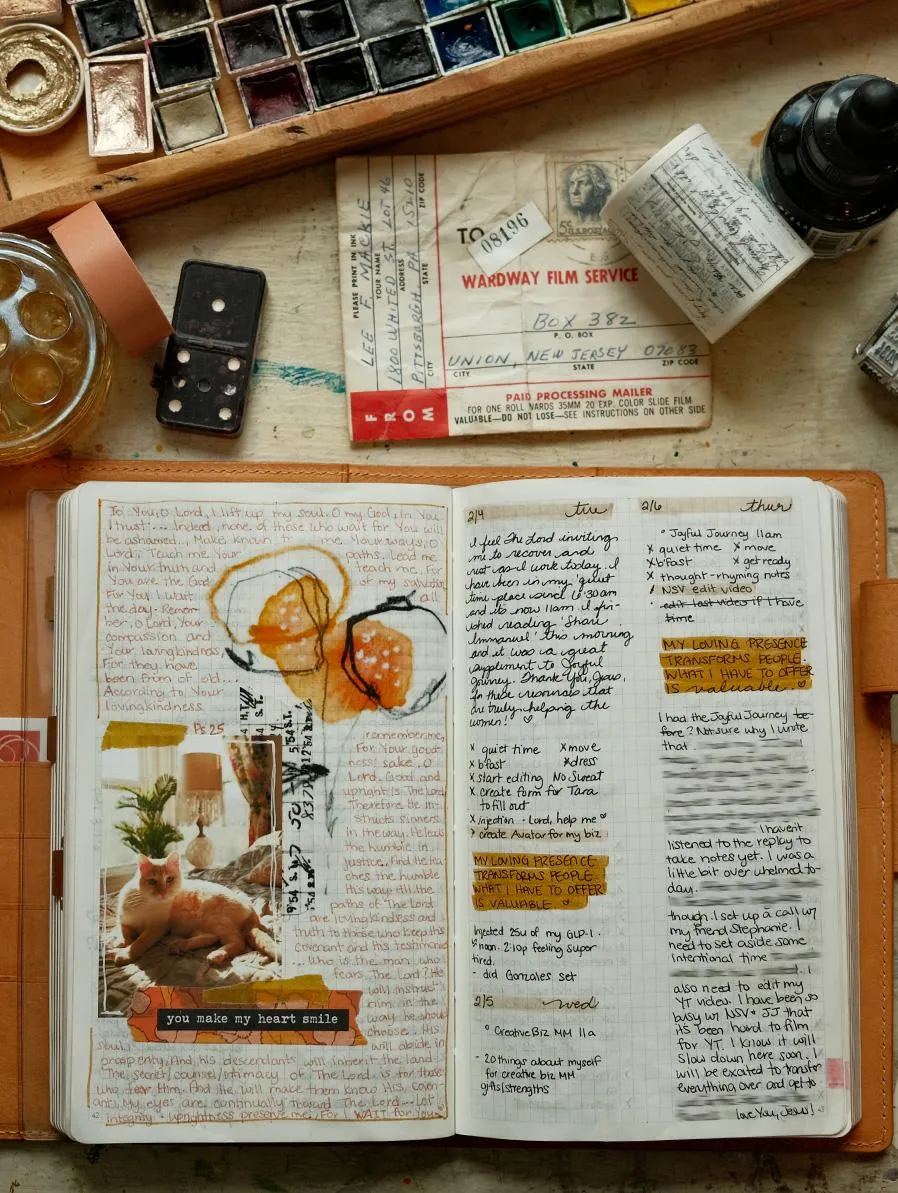 PLEASE PRINT IN INK
LEE F. MACKIE
YOUR NAME
1800 WHITED ST. LOT 46
ADDRESS
PITTSBURGH, PA 15210
CITY
STATE
ZIP CODE
FROM
TO
08196
5¢ U.S. POSTAGE
WARDWAY FILM SERVICE
BOX 382
P. O. BOX
UNION, NEW JERSEY 07083
CITY
STATE
ZIP CODE
PAID PROCESSING MAILER
FOR ONE ROLL WARDS 35MM 20 EXP. COLOR SLIDE FILM
VALUABLE—DO NOT LOSE—SEE INSTRUCTIONS ON OTHER SIDE
To You, O Lord, I lift up my soul. O my God, in You
I trust... Indeed, none of those who wait for You will
be ashamed... Make known to me Your ways, O
Lord; Teach me Your paths. Lead me
in Your truth and teach me, For
You are the God of my salvation
For You I wait all
the day. Remem-
ber, O Lord, Your
compassion and
Your lovingkindness,
For they have
been from of old...
According to Your
lovingkindness
Ps 25
remember me,
For Your good-
ness' sake, O
Lord. Good and
upright is the Lord
Therefore He in-
structs sinners
in the way. He leads
the humble in
justice, And He tea-
ches the humble
His way. All the
paths of The Lord
are lovingkindness and
truth to those who keep His
covenant and His testimonies
...Who is the man who
fears The Lord? He
will instruct
him in the
way he should
choose. His
soul will abide in
prosperity, And his descendants will inherit the land
The secret/counsel/intimacy of The Lord is for those
who fear Him, And He will make them know His coven-
ant. My eyes are continually toward The Lord... Let
integrity + uprightness preserve me, For I WAIT for You.
you make my heart smile
42
2/4 tue
I feel the Lord inviting
me to recover and
rest as I work today. I
have been in my quiet
time place since 6:30am
and its now 11am. I fini-
shed reading 'Share
Immanuel' this morning
and it was a great
supplement to Joyful
Journey. Thank You, Jesus,
for these resources that
are truly helping the
women! ♡
x quiet time x move
x b'fast x dress
x start editing No Sweat
x create form for Tara
to fill out
x injection - Lord, help me ♡
> create Avatar for my biz
MY LOVING PRESENCE
TRANSFORMS PEOPLE.
WHAT I HAVE TO OFFER
IS VALUABLE ♡
Injected 25u of my GLP-1.
@ noon. 2:10p feeling super
tired.
- did Gonzales set
2/5 wed
° Creative Biz MM 11a
- 20 things about myself
for creative biz MM
gifts/strengths
2/6 thur
° Joyful Journey 11am
x quiet time x move
x b'fast x get ready
x thought-rhyming notes
/ NSV edit video
· edit last video if I have
time
MY LOVING PRESENCE
TRANSFORMS PEOPLE.
WHAT I HAVE TO OFFER
IS valuable. ♡
I had the Joyful Journey be-
fore? Not sure why I wrote
that
I haven't
listened to the replay to
take notes yet. I was a
little bit over whelmed to-
day.
though. I set up a call w/
my friend Stephanie. I
need to set aside some
intentional time
I
also need to edit my
YT video. I have been so
busy w/ NSV + JJ that
it's been hard to film
for YT. I know it will
slow down here soon. I
will be excited to transfer
everything over and get to
love You, Jesus!
43